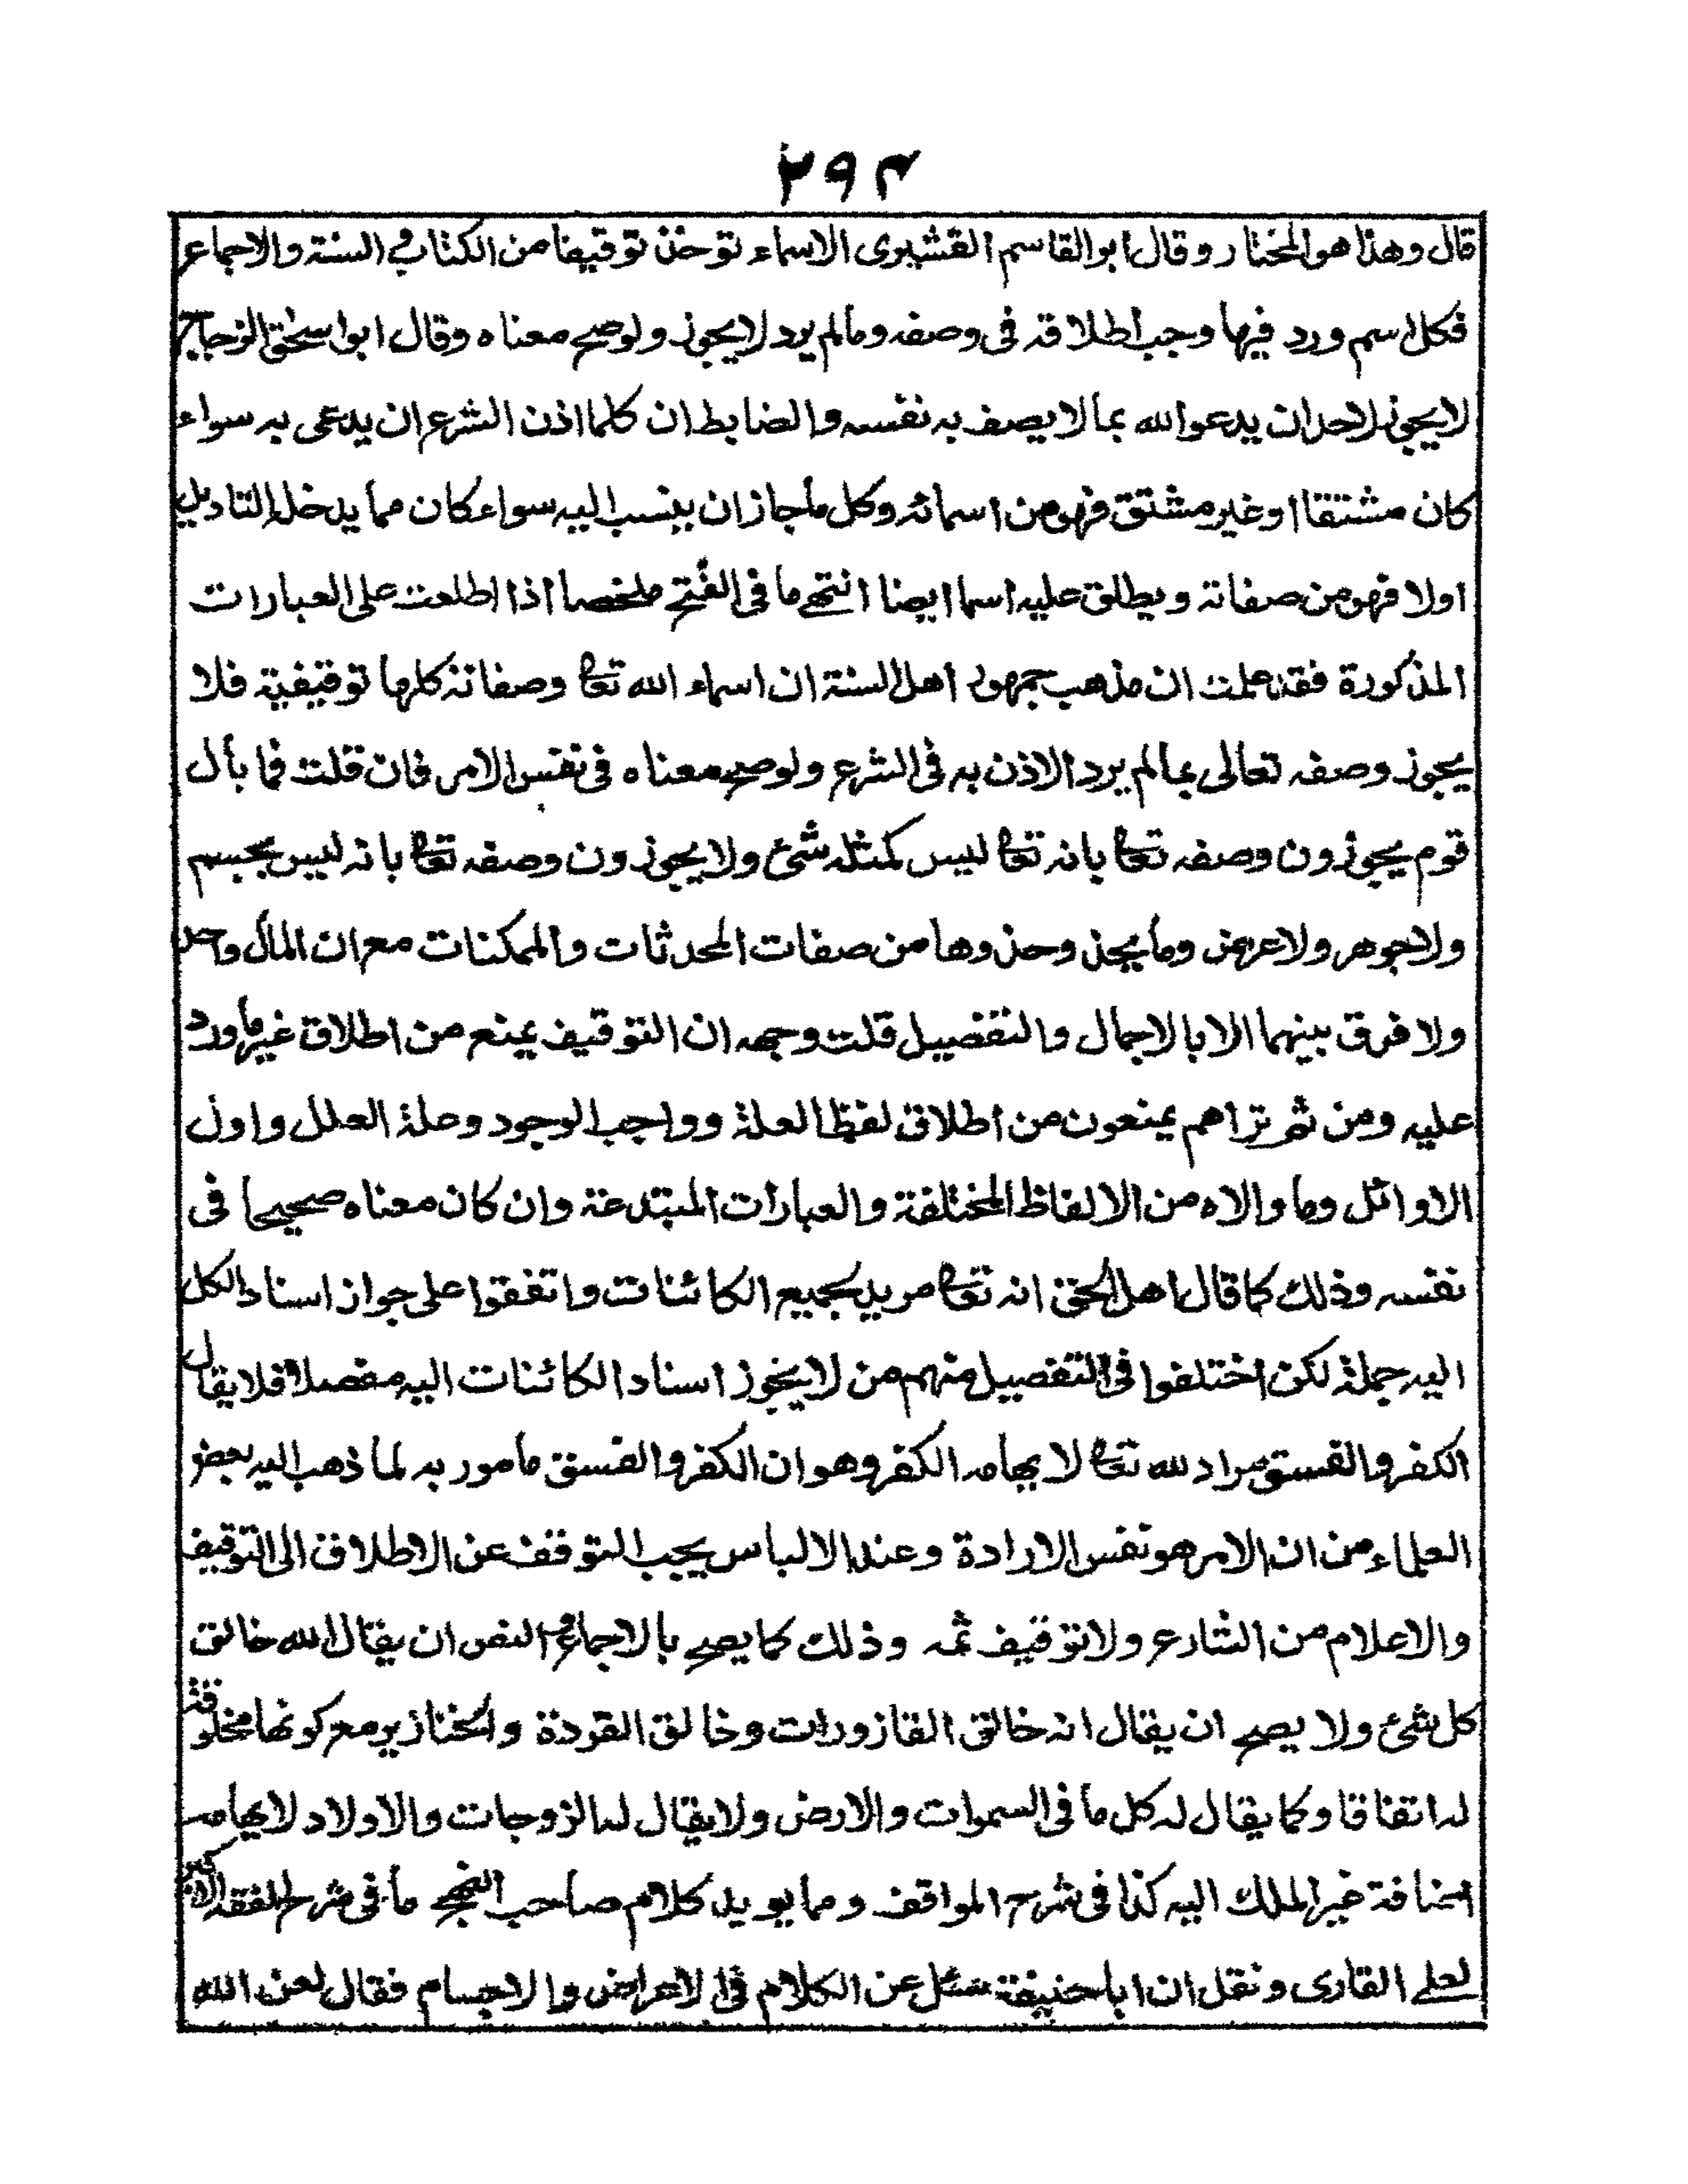 ٢٩٤
قال وهذا هو المختار وقال ابو القاسم القشيرى الاسماء توخذ توقيفا من الكتاب والسنة والاجماع
فكل اسم ورد فيها وجب اطلاقه فى وصفه ومالم يرد لا يجوز ولو صح معناه وقال ابو اسحق الزجاج
لا يجوز لاحد ان يدعو الله بما لا يصف به نفسه والضابط ان كلما اذن الشرع ان يدعى به سواء
كان مشتقا او غير مشتق فهو من اسمائه وكل ما جاز ان ينسب اليه سواء كان مما يدخله التاديل
اولا فهو من صفاته ويطلق عليه اسما ايضا انتهى ما فى الفتح ملخصا اذا اطلعت على العبارات
المذكورة فقد علمت ان مذهب جمهور اهل السنة ان اسماء الله تعا وصفاته كلها توقيفية فلا
يجوز وصفه تعالى بمالم يرد الاذن به فى الشرع ولو صح معناه فى نفس الامر فان قلت فما بال
قوم يجوزون وصفه تعا بانه تعا ليس كمثله شئ ولا يجوزون وصفه تعا بانه ليس بجسم
ولا جوهر ولا عرض وما يحذ وحذوها من صفات المحدثات والممكنات مع ان المال واحد
ولا فرق بينهما الا بالاجمال والتفصيل قلت وجهه ان التوقيف يمنع من اطلاق غير ما ورد
عليه ومن ثم تراهم يمنعون من اطلاق لفظ العلة وواجب الوجود وعلة العلل واول
الاوائل وما والاه من الالفاظ المختلفة والعبارات المبتدعة وان كان معناه صحيحا فى
نفسه وذلك كما قال اهل الحق انه تعا مريد لجميع الكائنات واتفقوا على جواز اسناد الكل
اليه جملة لكن اختلفوا فى التفصيل منهم من لا يجوز اسناد الكائنات اليه مفصلا فلا يقال
الكفر والفسق مراد لله تعا لايهامه الكفر وهو ان الكفر والفسق مامور به لما ذهب اليه بعض
العلماء من ان الامر هو نفس الارادة وعند الالباس يجب التوقف عن الاطلاق الى التوقيف
والاعلام من الشارع ولا توقيف ثمه وذلك كما يصح بالاجماع والنص ان يقال الله خالق
كل شئ ولا يصح ان يقال انه خالق القازورات وخالق القردة والخنازير مع كونها مخلوقة
له اتفاقا وكما يقال له كل ما فى السموات والارض ولا يقال له الزوجات والاولاد لايهامه
اضافة غير الملك اليه كذا فى شرح المواقف ومما يويد كلام صاحب النهج ما فى شرح الفقه الاكبر
لعلى القارى ونقل ان ابا حنيفة سئل عن الكلام فى الاعراض والاجسام فقال لعن الله